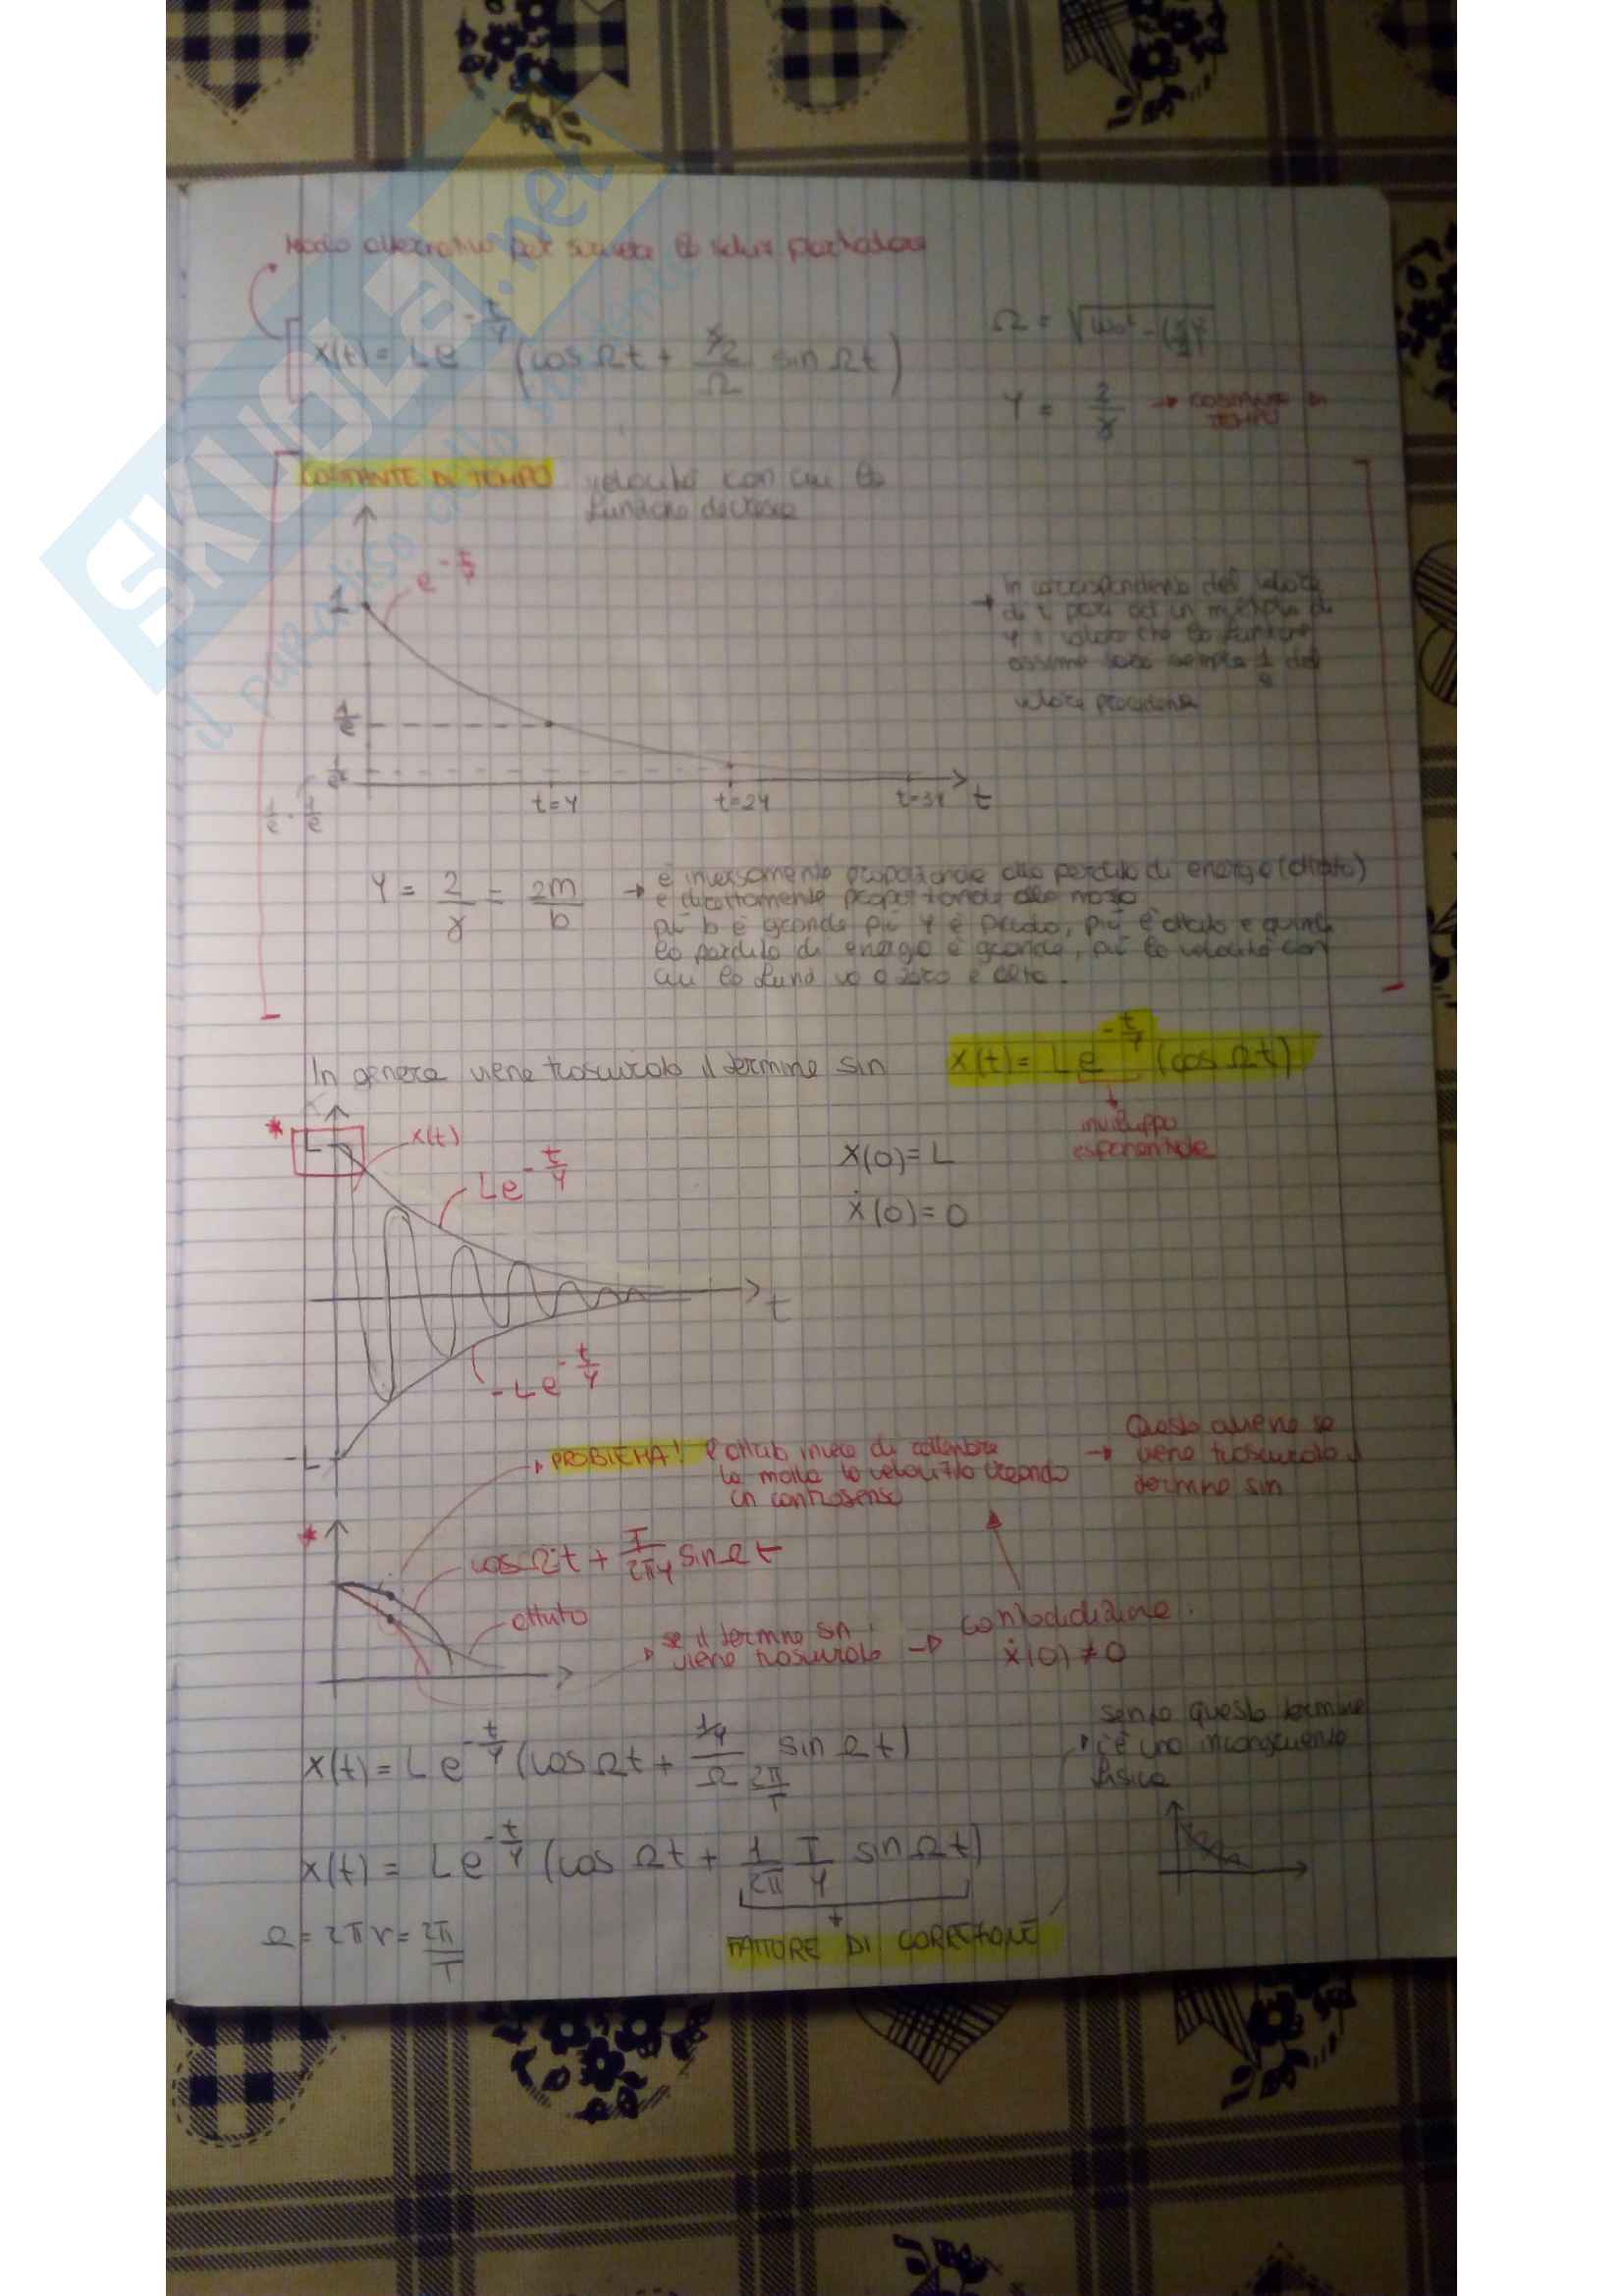 SKUOLA.net
il paradiso dello studente
Modo alternativo per scrivere la soluz particolare
x(t) = L e^(-t/τ) (cos Ωt + (γ/2)/Ω sin Ωt)
Ω = √(ω₀² - (γ/2)²)
τ = 2/γ → COSTANTE DI TEMPO
COSTANTE DI TEMPO velocità con cui la
funzione decresce
e^(-t/τ)
1
1/e
1/e²
1/e · 1/e
t=τ
t=2τ
t=3τ
t
→ In corrispondenza del valore
di t pari ad un multiplo di
τ il valore che la funzione
assume sarà sempre 1/e del
valore precedente
τ = 2/γ = 2m/b → è inversamente proporzionale alla perdita di energia (attrito)
e direttamente proporzionale alla massa
più b è grande più τ è piccolo, più è attrito e quindi
la perdita di energia è grande, più la velocità con
cui la funz va a zero è alta.
In genere viene trascurato il termine sin
x(t) = L e^(-t/τ) (cos Ωt)
inviluppo
esponenziale
*
L
x(t)
L e^(-t/τ)
x(0) = L
ẋ(0) = 0
t
-L e^(-t/τ)
-L
→ PROBLEMA! l'attrito invece di rallentare
la molla la velocizza creando
un controsenso
→ Questo avviene se
viene trascurato il
termine sin
*
cos Ωt + T/2πτ sin Ωt
attrito
→ se il termine sin
viene trascurato → contraddizione.
ẋ(0) ≠ 0
x(t) = L e^(-t/τ) (cos Ωt + (1/τ)/Ω sin Ωt)
2π/T
senza questo termine
c'è una incongruenza
fisica
x(t) = L e^(-t/τ) (cos Ωt + 1/2π T/τ sin Ωt)
FATTORE DI CORREZIONE
Ω = 2πν = 2π/T